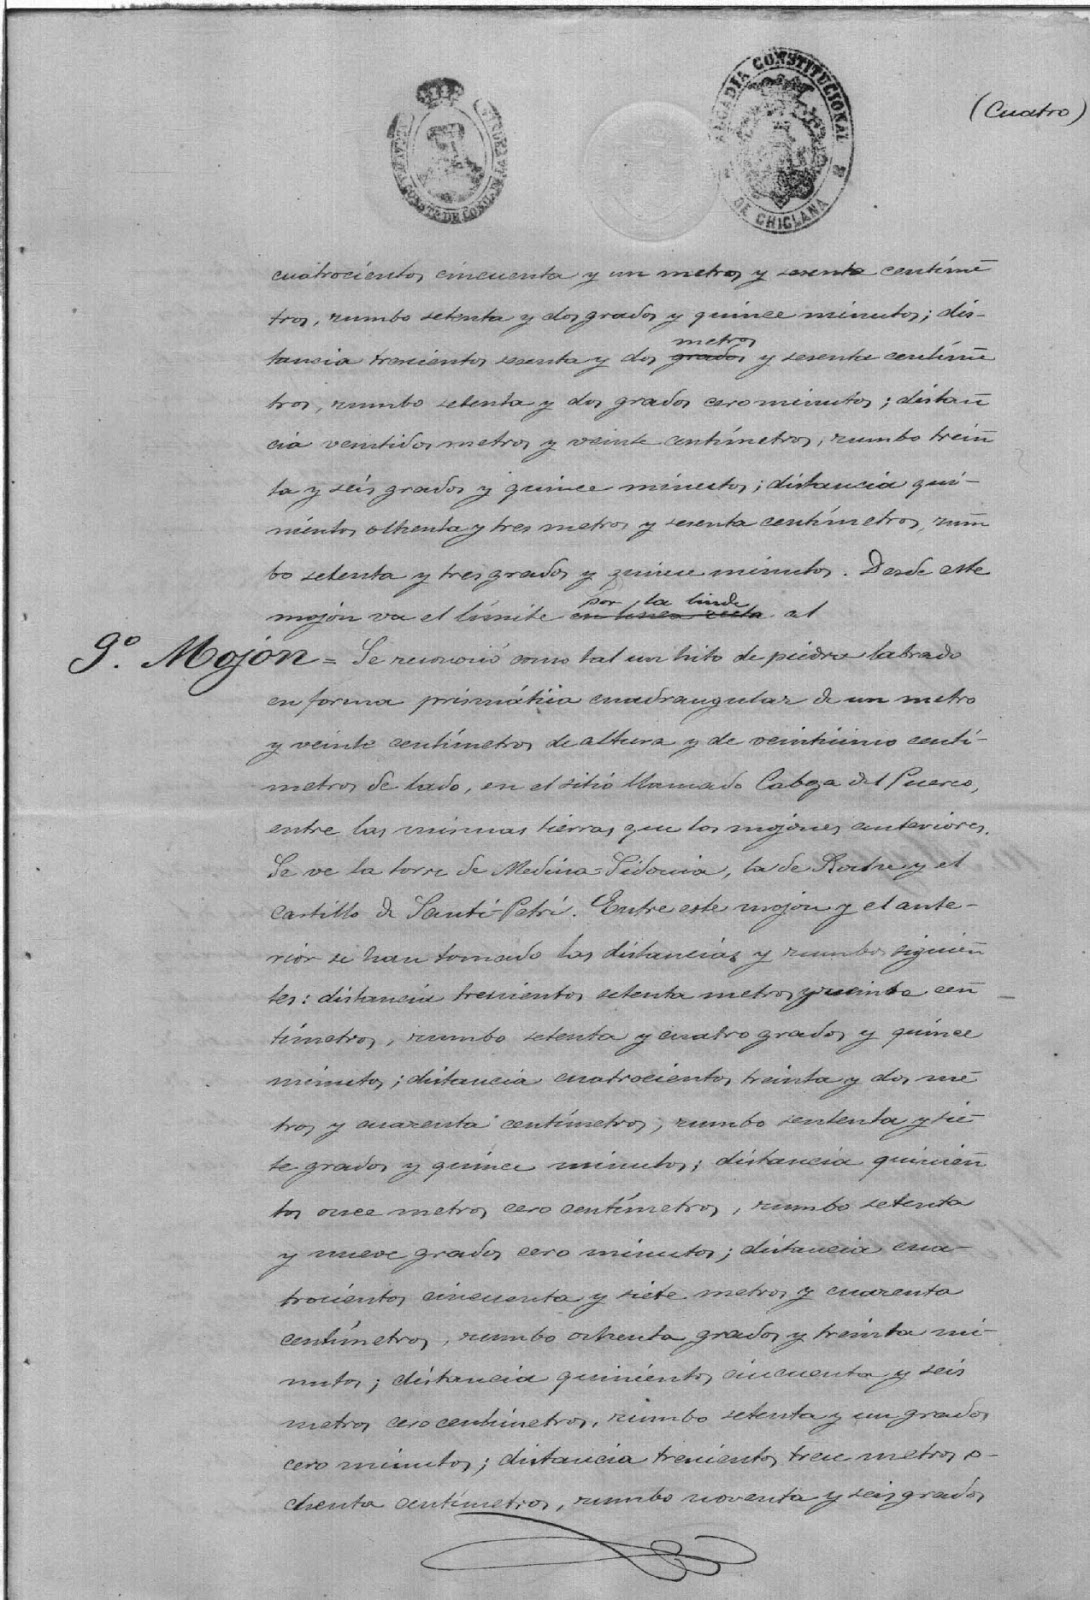 (Cuatro)
ALCALDIA CONSTITUCIONAL
DE CHICLANA
cuatrocientos cincuenta y un metros y sesenta centíme
tros, rumbo setenta y dos grados y quince minutos; dis-
metros
tancia trescientos sesenta y dos grados y sesenta centíme
tros, rumbo setenta y dos grados cero minutos; distan
cia ventidos metros y veinte centímetros, rumbo trein
ta y seis grados y quince minutos; distancia qui-
nientos ochenta y tres metros y sesenta centímetros, rum
bo setenta y tres grados y quince minutos. Desde este
por la linde
mojón va el límite en linea recta al
9º Mojón = Se reconoció como tal un hito de piedra labrado
en forma prismática cuadrangular de un metro
y veinte centímetros de altura y de veintiuno centí-
metros de lado, en el sitio llamado Cabeza del Puerco,
entre las mismas tierras que los mojones anteriores.
Se ve la torre de Medina=Sidonia, la de Roche y el
castillo de Santi-Petri. Entre este mojon y el ante-
rior se han tomado las distancias y rumbos siguien
tes: distancia trescientos setenta metros y veinte cen
tímetros, rumbo setenta y cuatro grados y quince
minutos; distancia cuatrocientos treinta y dos me
tros y cuarenta centímetros, rumbo sententa y sie-
te grados y quince minutos; distancia quinien
tos once metros cero centímetros, rumbo setenta
y nueve grados cero minutos; distancia cua-
trocientos cincuenta y siete metros y cuarenta
centímetros, rumbo ochenta grados y treinta mi-
nutos; distancia quinientos cincuenta y seis
metros cero centímetros, rumbo setenta y un grados
cero minutos; distancia trescientos trece metros o-
chenta centímetros, rumbo noventa y seis grados